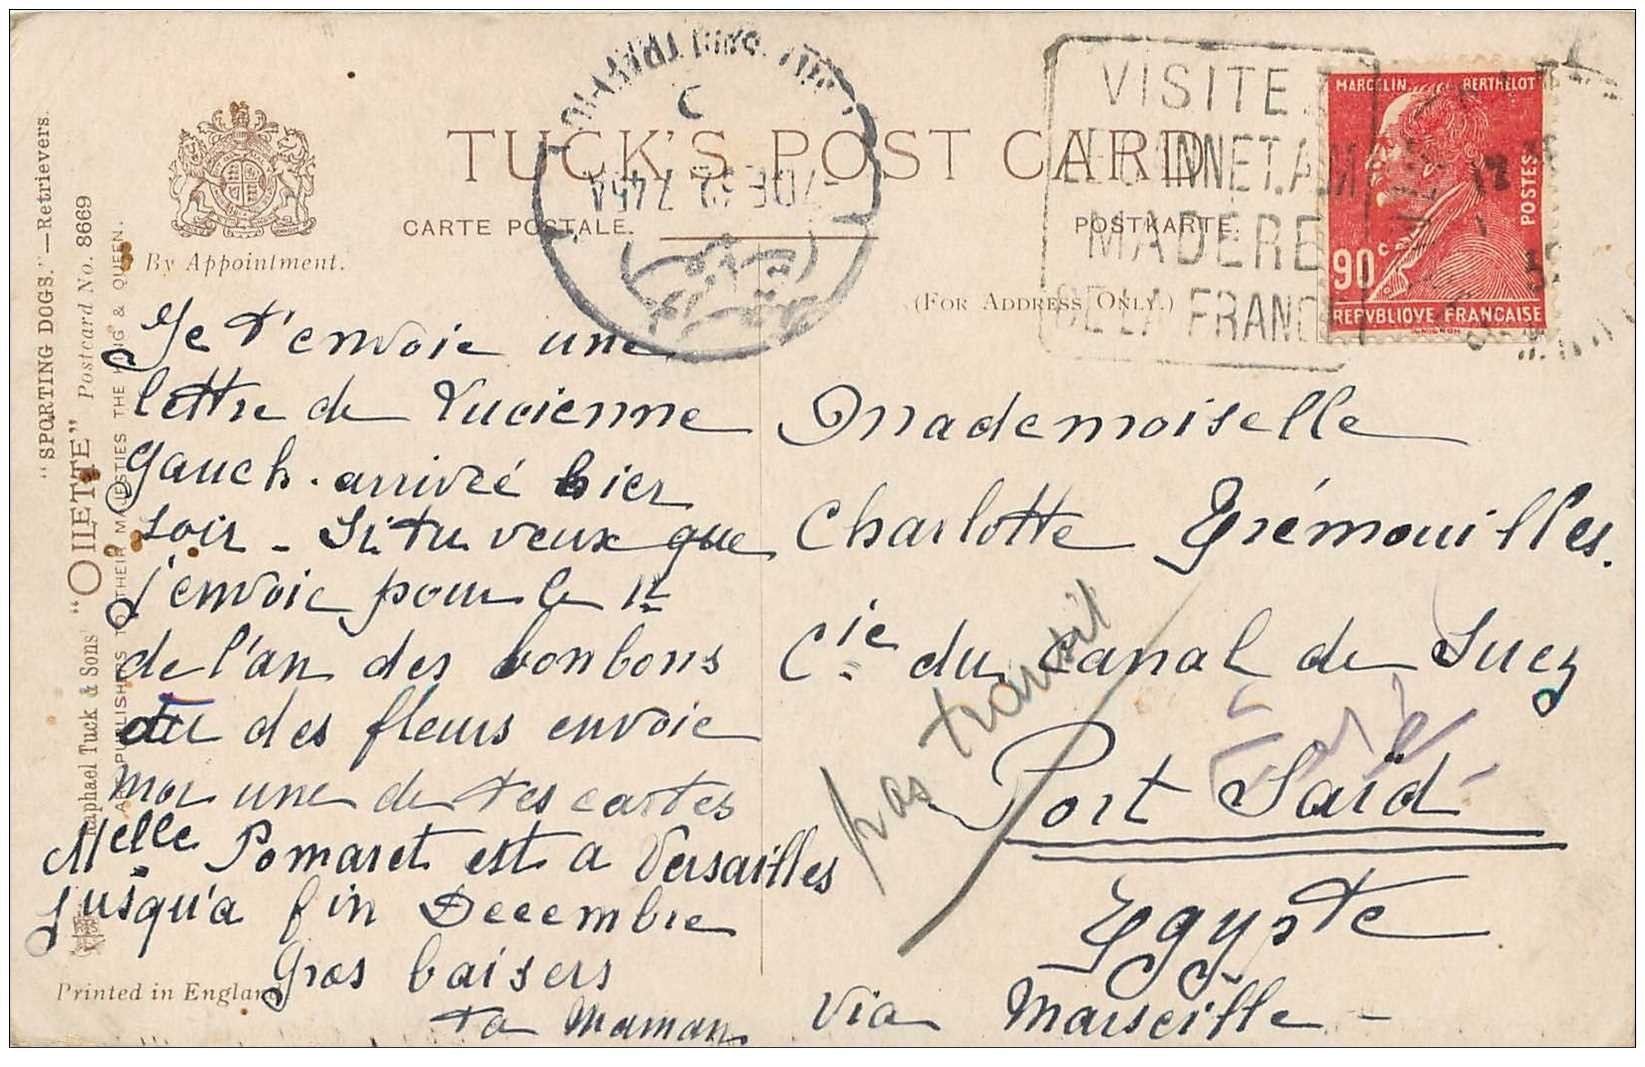 "SPORTING DOGS."—Retrievers.
"OILETTE" Postcard No. 8669
Raphael Tuck & Sons'
ART PUBLISHERS TO THEIR MAJESTIES THE KING & QUEEN.
By Appointment.
TUCK'S POST CARD
CARTE POSTALE.
POSTKARTE.
(FOR ADDRESS ONLY.)
7 DE 32 7 45 A
VISITE
MADERE
DE LA FRANC
MARCELIN BERTHELOT
POSTES
90 c
REPVBLIQVE FRANÇAISE
Je t'envoie une
lettre de Lucienne
Gauch. arrivée hier
soir - Si tu veux que
j'envoie pour le 1er
de l'an des bonbons
ou des fleurs envoie
moi une de tes cartes
Melle Pomaret est a Versailles
jusqu'a fin Decembre
Gros baisers
ta Maman
Mademoiselle
Charlotte Trémouilles.
Cie du Canal de Suez
Port Saïd
Egypte
via Marseille -
pas transit
Printed in England.